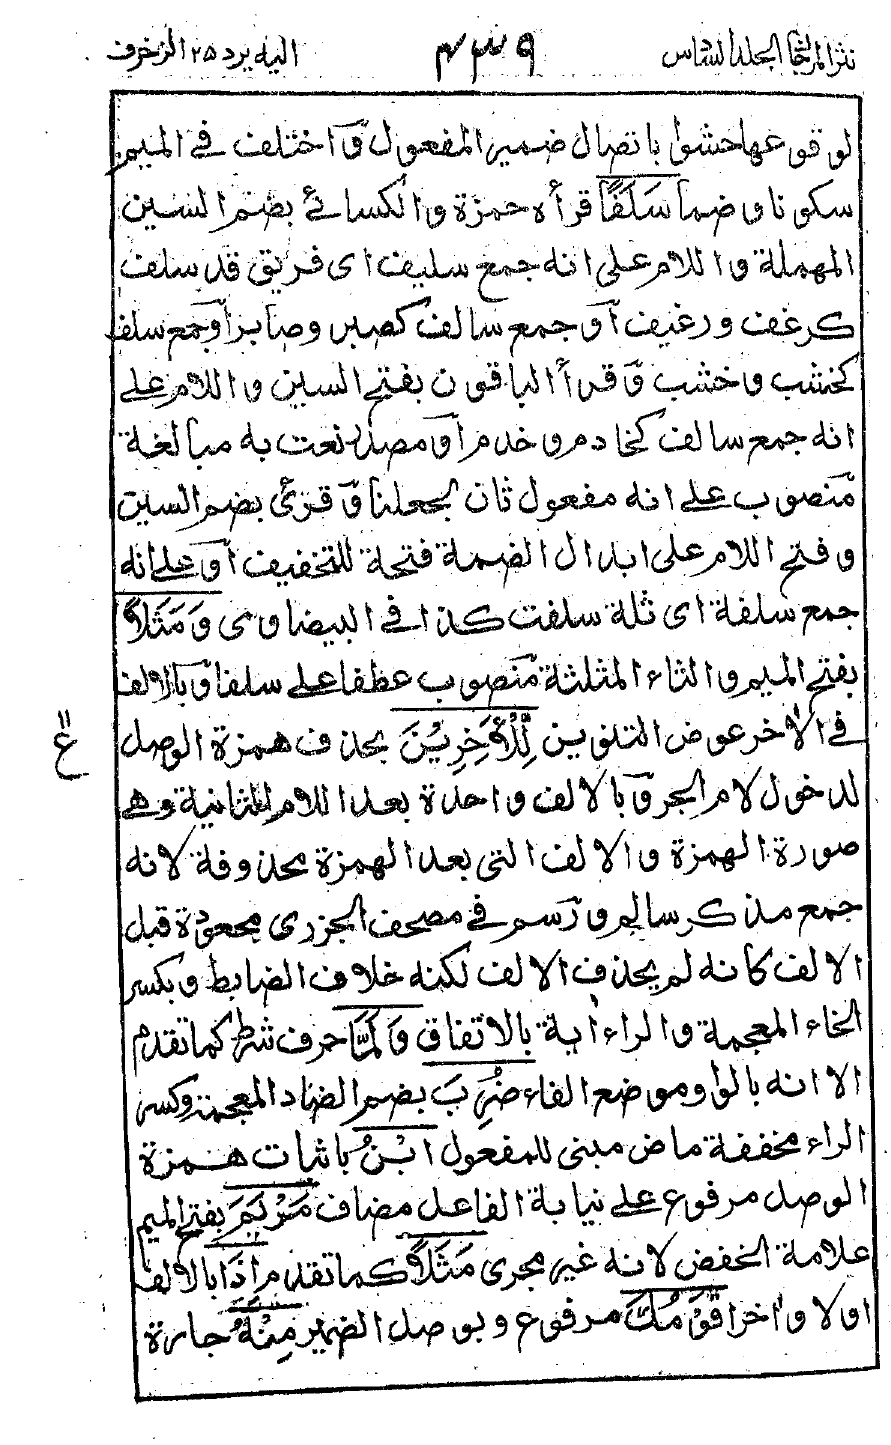 نثر المرجان الجلد السادس ٤٣٩ اليه يرد ٢٥ الزخرف
لوقوعها حشوا باتصال ضمير المفعول وٓاختلف في الميم
سكونا وضما سَلَفًا قرأه حمزة والكسائي بضم السين
المهملة واللام على انه جمع سليف اى فريق قد سلف
كرغف ورغيف اوٓ جمع سالف كصبر وصابر اوٓ جمع سلف
كخشب وخشب وٓقرأ الباقون بفتح السين واللام على
انه جمع سالف كخادم وخدم اوٓ مصدر نعت به مبالغة
منصوب على انه مفعول ثان لجعلنا وٓقرئ بضم السين
وفتح اللام على ابدال الضمة فتحة للتخفيف اوٓ على انه
جمع سلفة اى ثلة سلفت كذا في البيضاوى وَمَثَلًا
بفتح الميم والثاء المثلثة منصوب عطفا على سلفا وٓبالالف
في الاخر عوض التنوين لِّلْأٰخِرِيْنَ بحذف همزة الوصل
لدخول لام الجر وٓبالالف واحدة بعد اللام الثانية وهى
صورة الهمزة والالف التى بعد الهمزة محذوفة لانه
جمع مذكر سالم ورسم في مصحف الجزرى مجعودة قبل
الالف كانه لم يحذف الالف لكنه خلاف الضابط وبكسر
الخاء المعجمة والراء اٰية بالاتفاق وَلَمَّا حرف شرط كما تقدم
الا انه بالواو موضع الفاء ضُرِبَ بضم الضاد المعجمة وكسر
الراء مخففة ماض مبنى للمفعول ابْنُ باثبات همزة
الوصل مرفوع على نيابة الفاعل مضاف مَرْيَمَ بفتح الميم
علامة الخفض لانه غير مجرى مَثَلًا كما تقدم اِذَا بالالف
اولا واٰخرا قَوْمُكَ مرفوع وبوصل الضمير مِنْهُ جارة